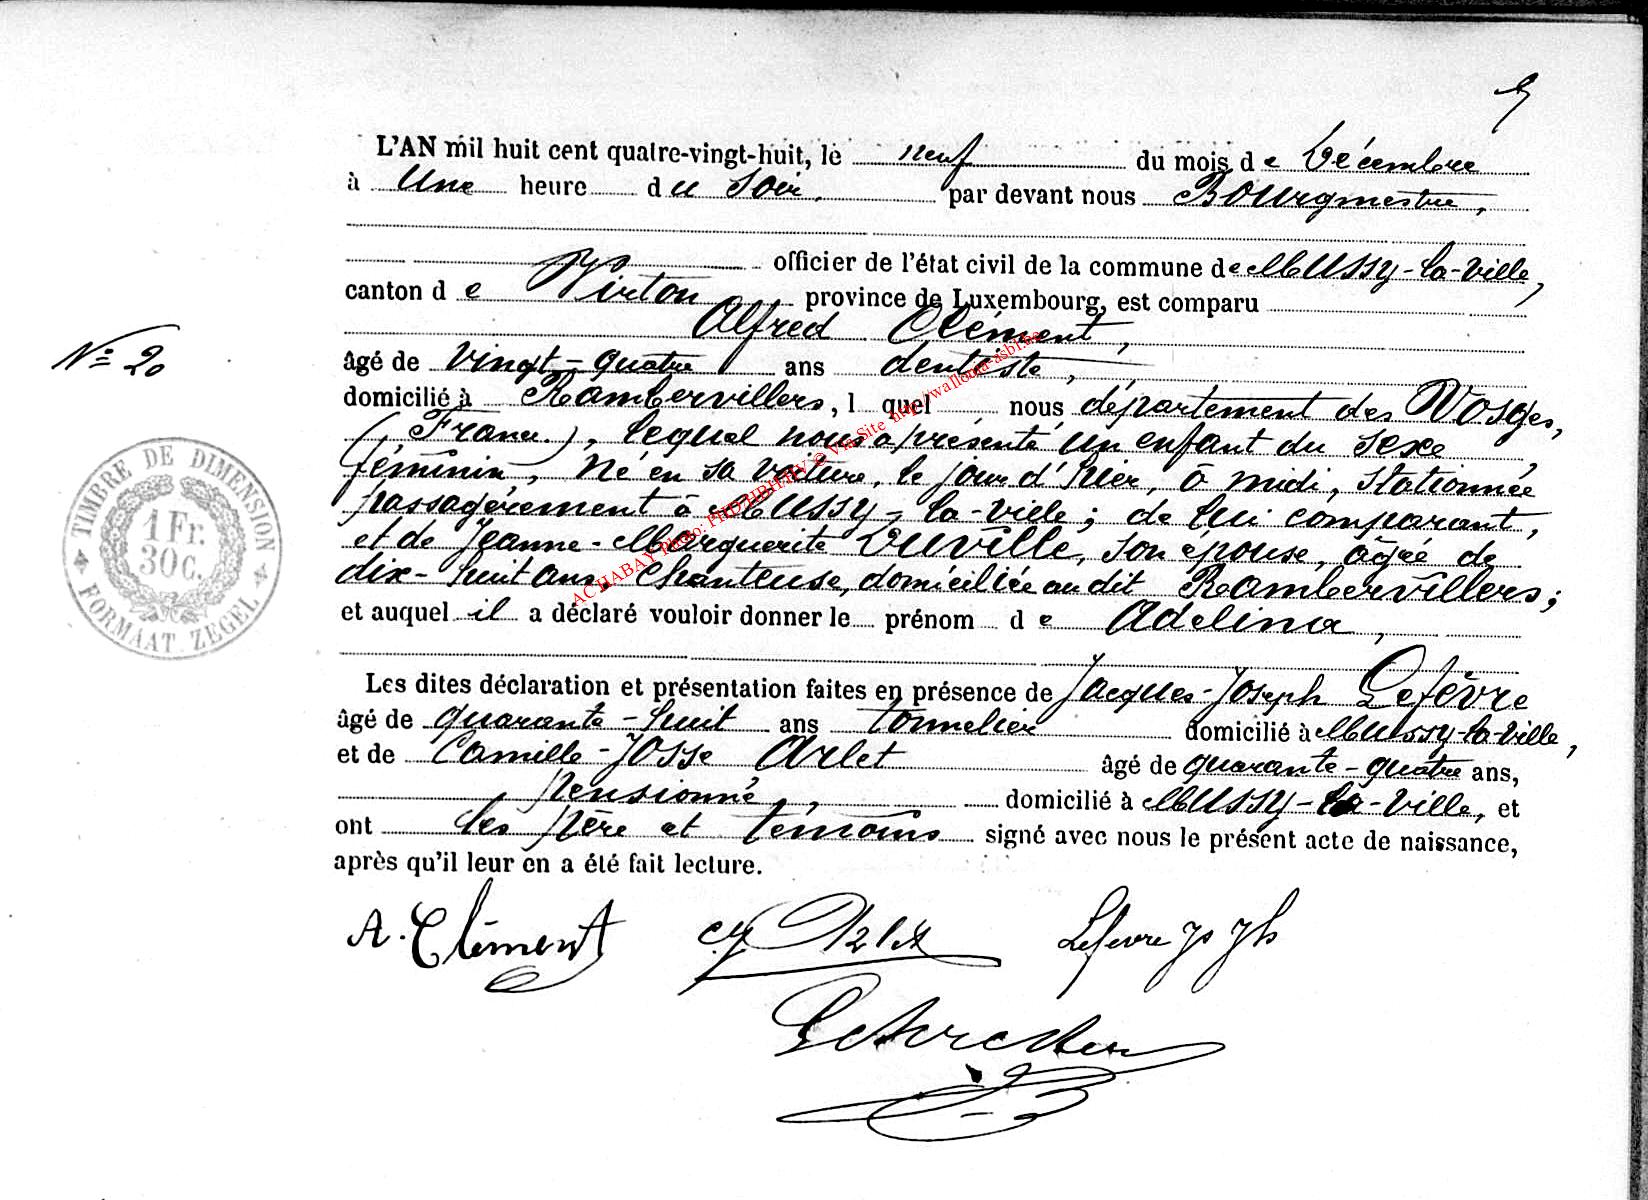 L'AN mil huit cent quatre-vingt-huit, le neuf du mois de Décembre
à Une heure du Soir, par devant nous Bourgmestre,
officier de l'état civil de la commune de Mussy-la-Ville,
canton de Virton province de Luxembourg, est comparu
Alfred Clément,
N° 20
âgé de vingt-quatre ans dentiste,
domicilié à Rambervillers, l quel nous département des Vosges,
(France.), lequel nous a présenté un enfant du sexe
féminin, né en sa voiture, le jour d'hier, à midi, stationnée
passagèrement à Mussy-la-ville; de lui comparant,
et de Jeanne-Marguerite Duville, son épouse, âgée de
dix-huit ans, Chanteuse, domiciliée au dit Rambervillers;
et auquel il a déclaré vouloir donner le prénom de Adelina,
TIMBRE DE DIMENSION
1 Fr.
30 C.
FORMAAT ZEGEL
ACHABAY Photo: PHD/HBH/HV © Via Site http://wallonia-asbl.be
Les dites déclaration et présentation faites en présence de Jacques-Joseph Lefèvre
âgé de quarante-huit ans tonnelier domicilié à Mussy-la-Ville,
et de Camille-Josse Arlet âgé de quarante-quatre ans,
pensionné, domicilié à Mussy-la-Ville, et
ont les père et témoins signé avec nous le présent acte de naissance,
après qu'il leur en a été fait lecture.
A. Clément Arlet Lefevre Js Jh